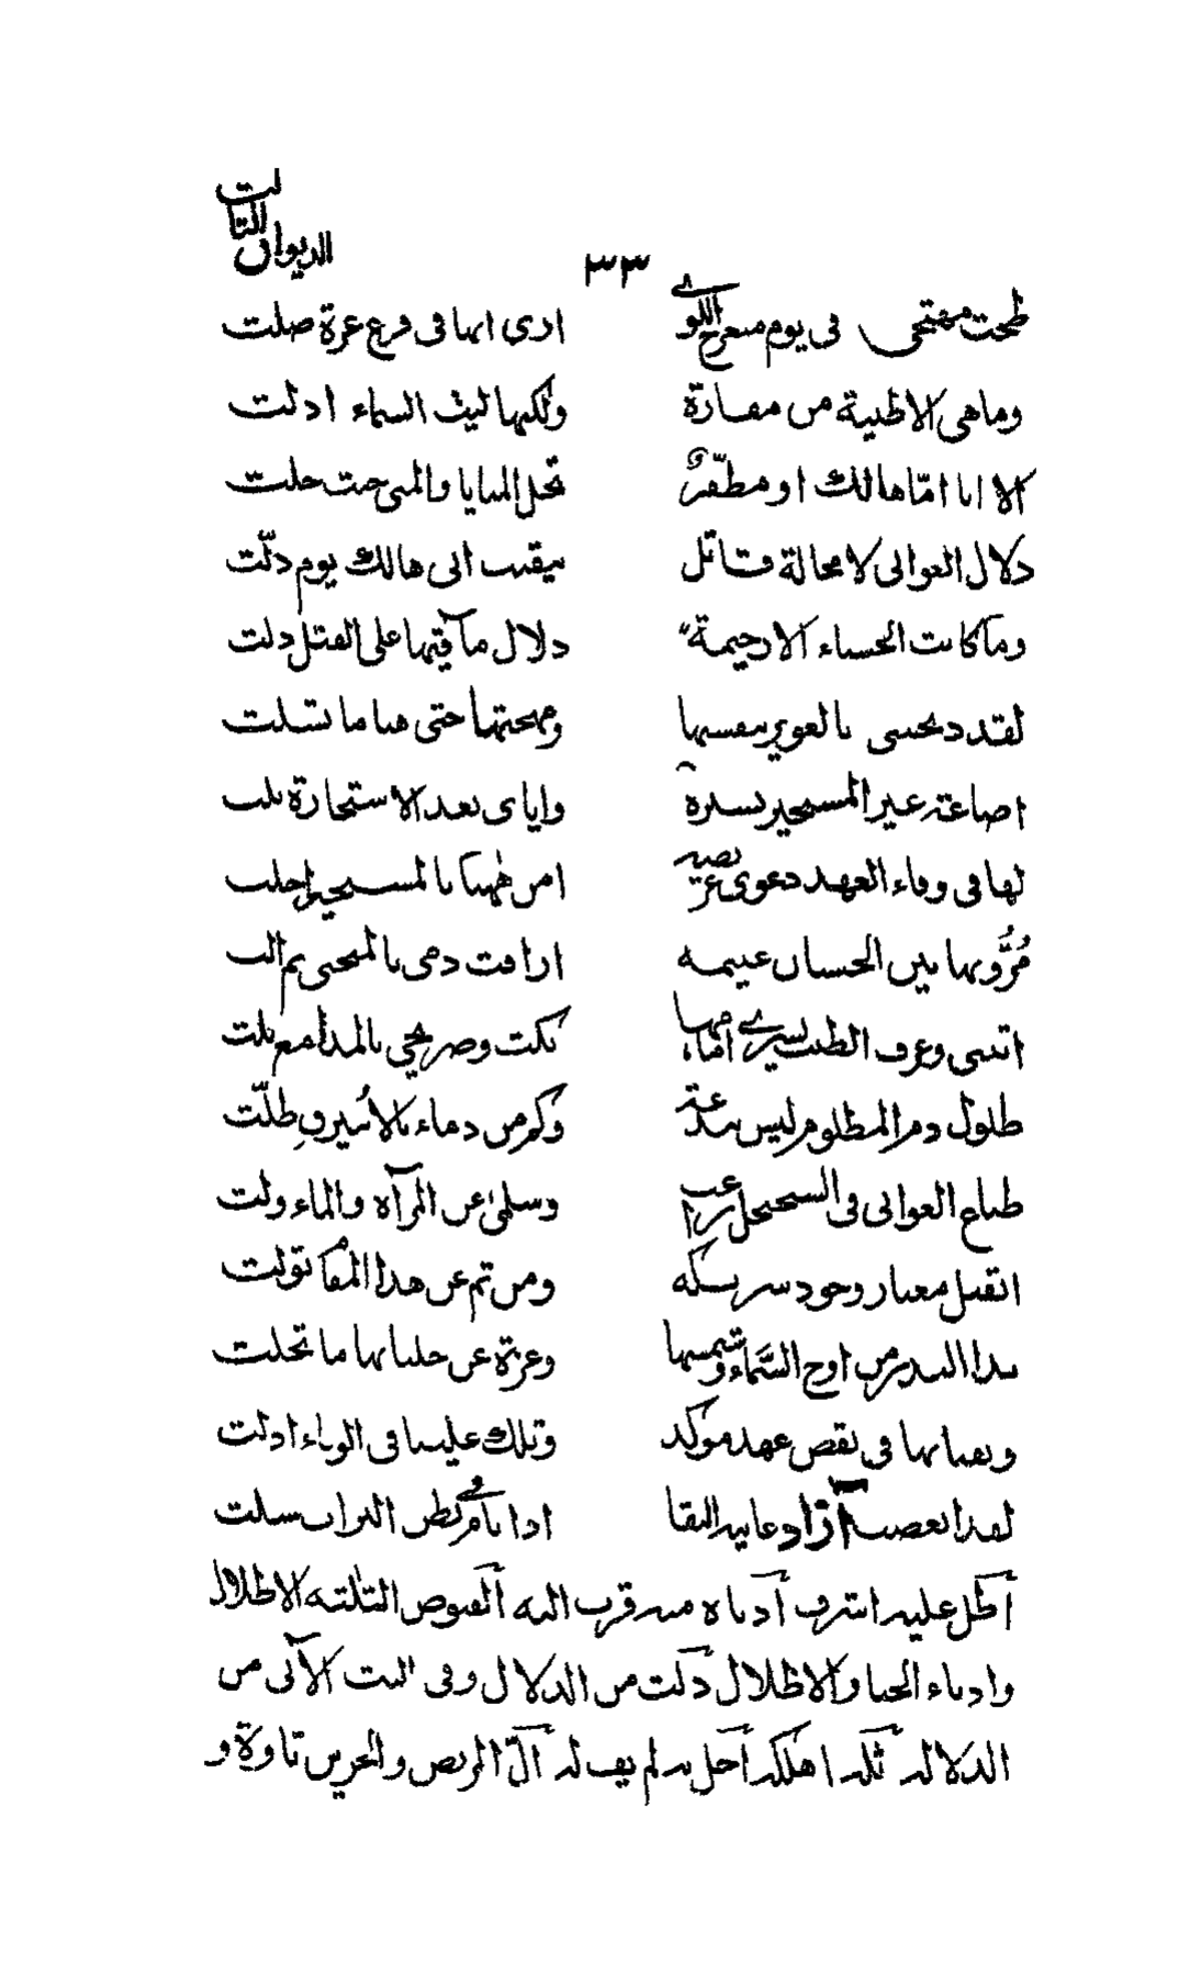 الديوان الثالث
٣٣
طمحت مهجتي في يوم منعرج اللوى ارى انها في فرع عزة صلت
وما هي الا ظبية من مفازة ولكنها ليث السماء ادلت
الا انا اما هالك او مظفر تحل المنايا والمنى حيث حلت
دلال الغواني لا محالة قاتل تيقنت انى هالك يوم دلت
وما كانت الحسناء الا رحيمة دلال مآقيها على القتل دلت
لقد بالغوير بنفسها ومهجتها حتى هنا ما تسلت
اضاعة غير المستجير بسدرة واياى بعد الاستجارة
لها في وفاء العهد دعوى امن ههنا بالمستجير اخلت
مروّ بها بين الحسان اراقت دمى بالمنحنى ثم
اتنسى وعرف الطيب يسرى امامها بكت وضريحي بالمدامع بلت
طلول دم المظلوم ليس ببدعة وكم من دماء بالاسيرف طلّت
طباع الغوانى فى وسلمى عن المرآة والماء ولت
اتقبل معيار وجود شريكه ومن ثم عن هذا المقام تولت
بدا البدر من اوج السماء وشمسها وعزة عن جلبابها ما تجلت
ونعبا بها فى نقض عهد موكد وتلك علينا فى الوباء ادلت
لقد آزاد غاية النقا اذا بامر فى بطن التراب سلت
أظل عليه اشرف أدناه منه قرب اليه ألنصوص الثلثة الاظلال
وادناء الحيا والاظلال دلت من الدلال وفى البيت الآتى من
الدلالة ثله اهلكه أخل به لم يف له المريض والحزين تاوه و